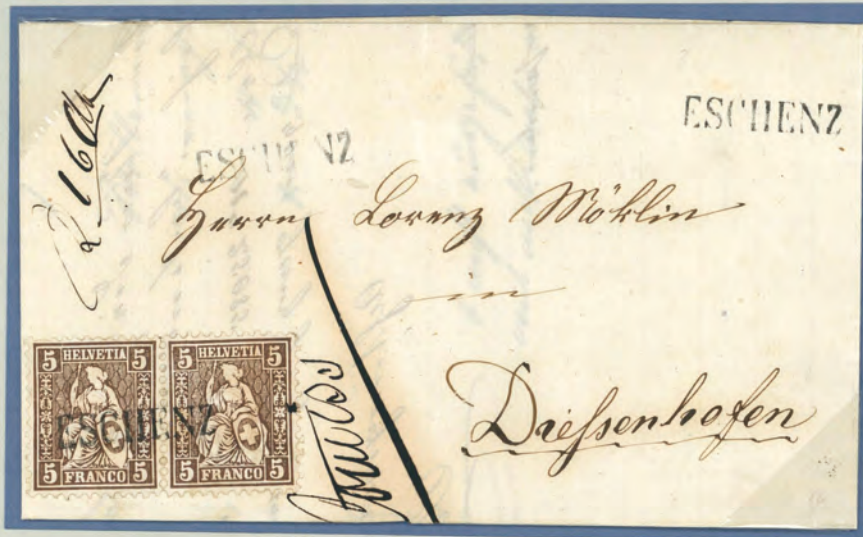 ESCHENZ
ESCHENZ
Herrn Lorenz Möklin
in
Diessenhofen
5 HELVETIA 5
5 FRANCO 5
5 HELVETIA 5
5 FRANCO 5
ESCHENZ
franco